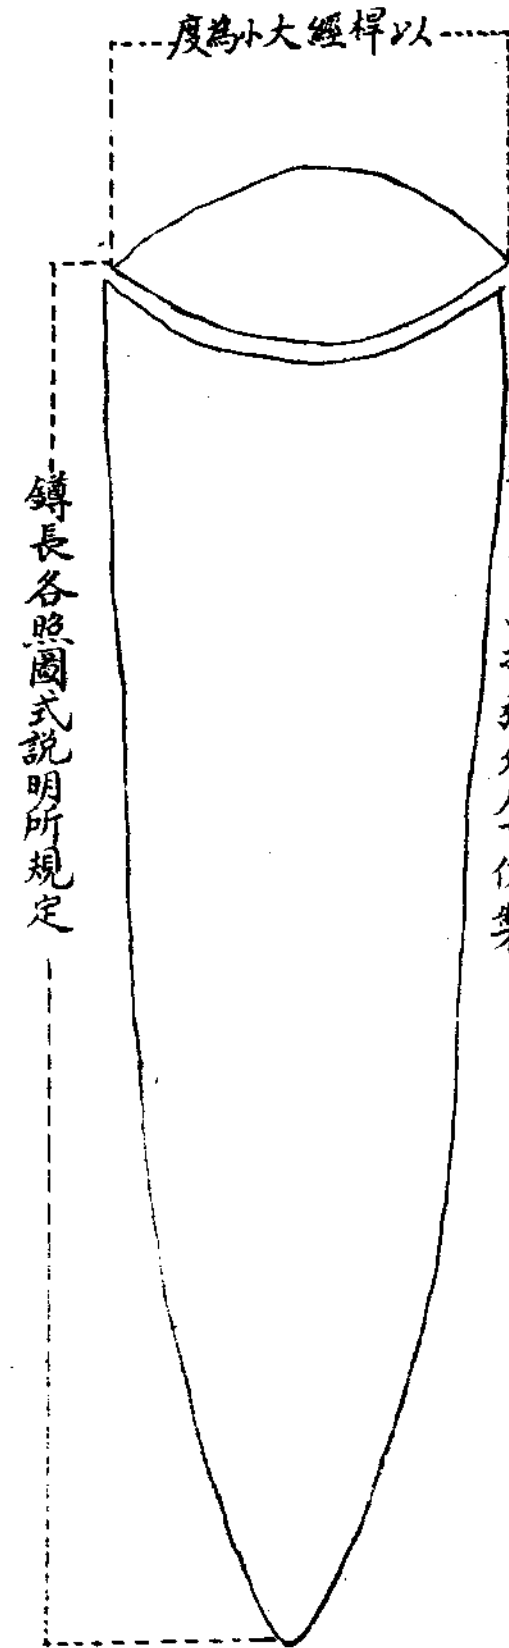 以桿經大小為度
鐏長各照圖式説明所規定